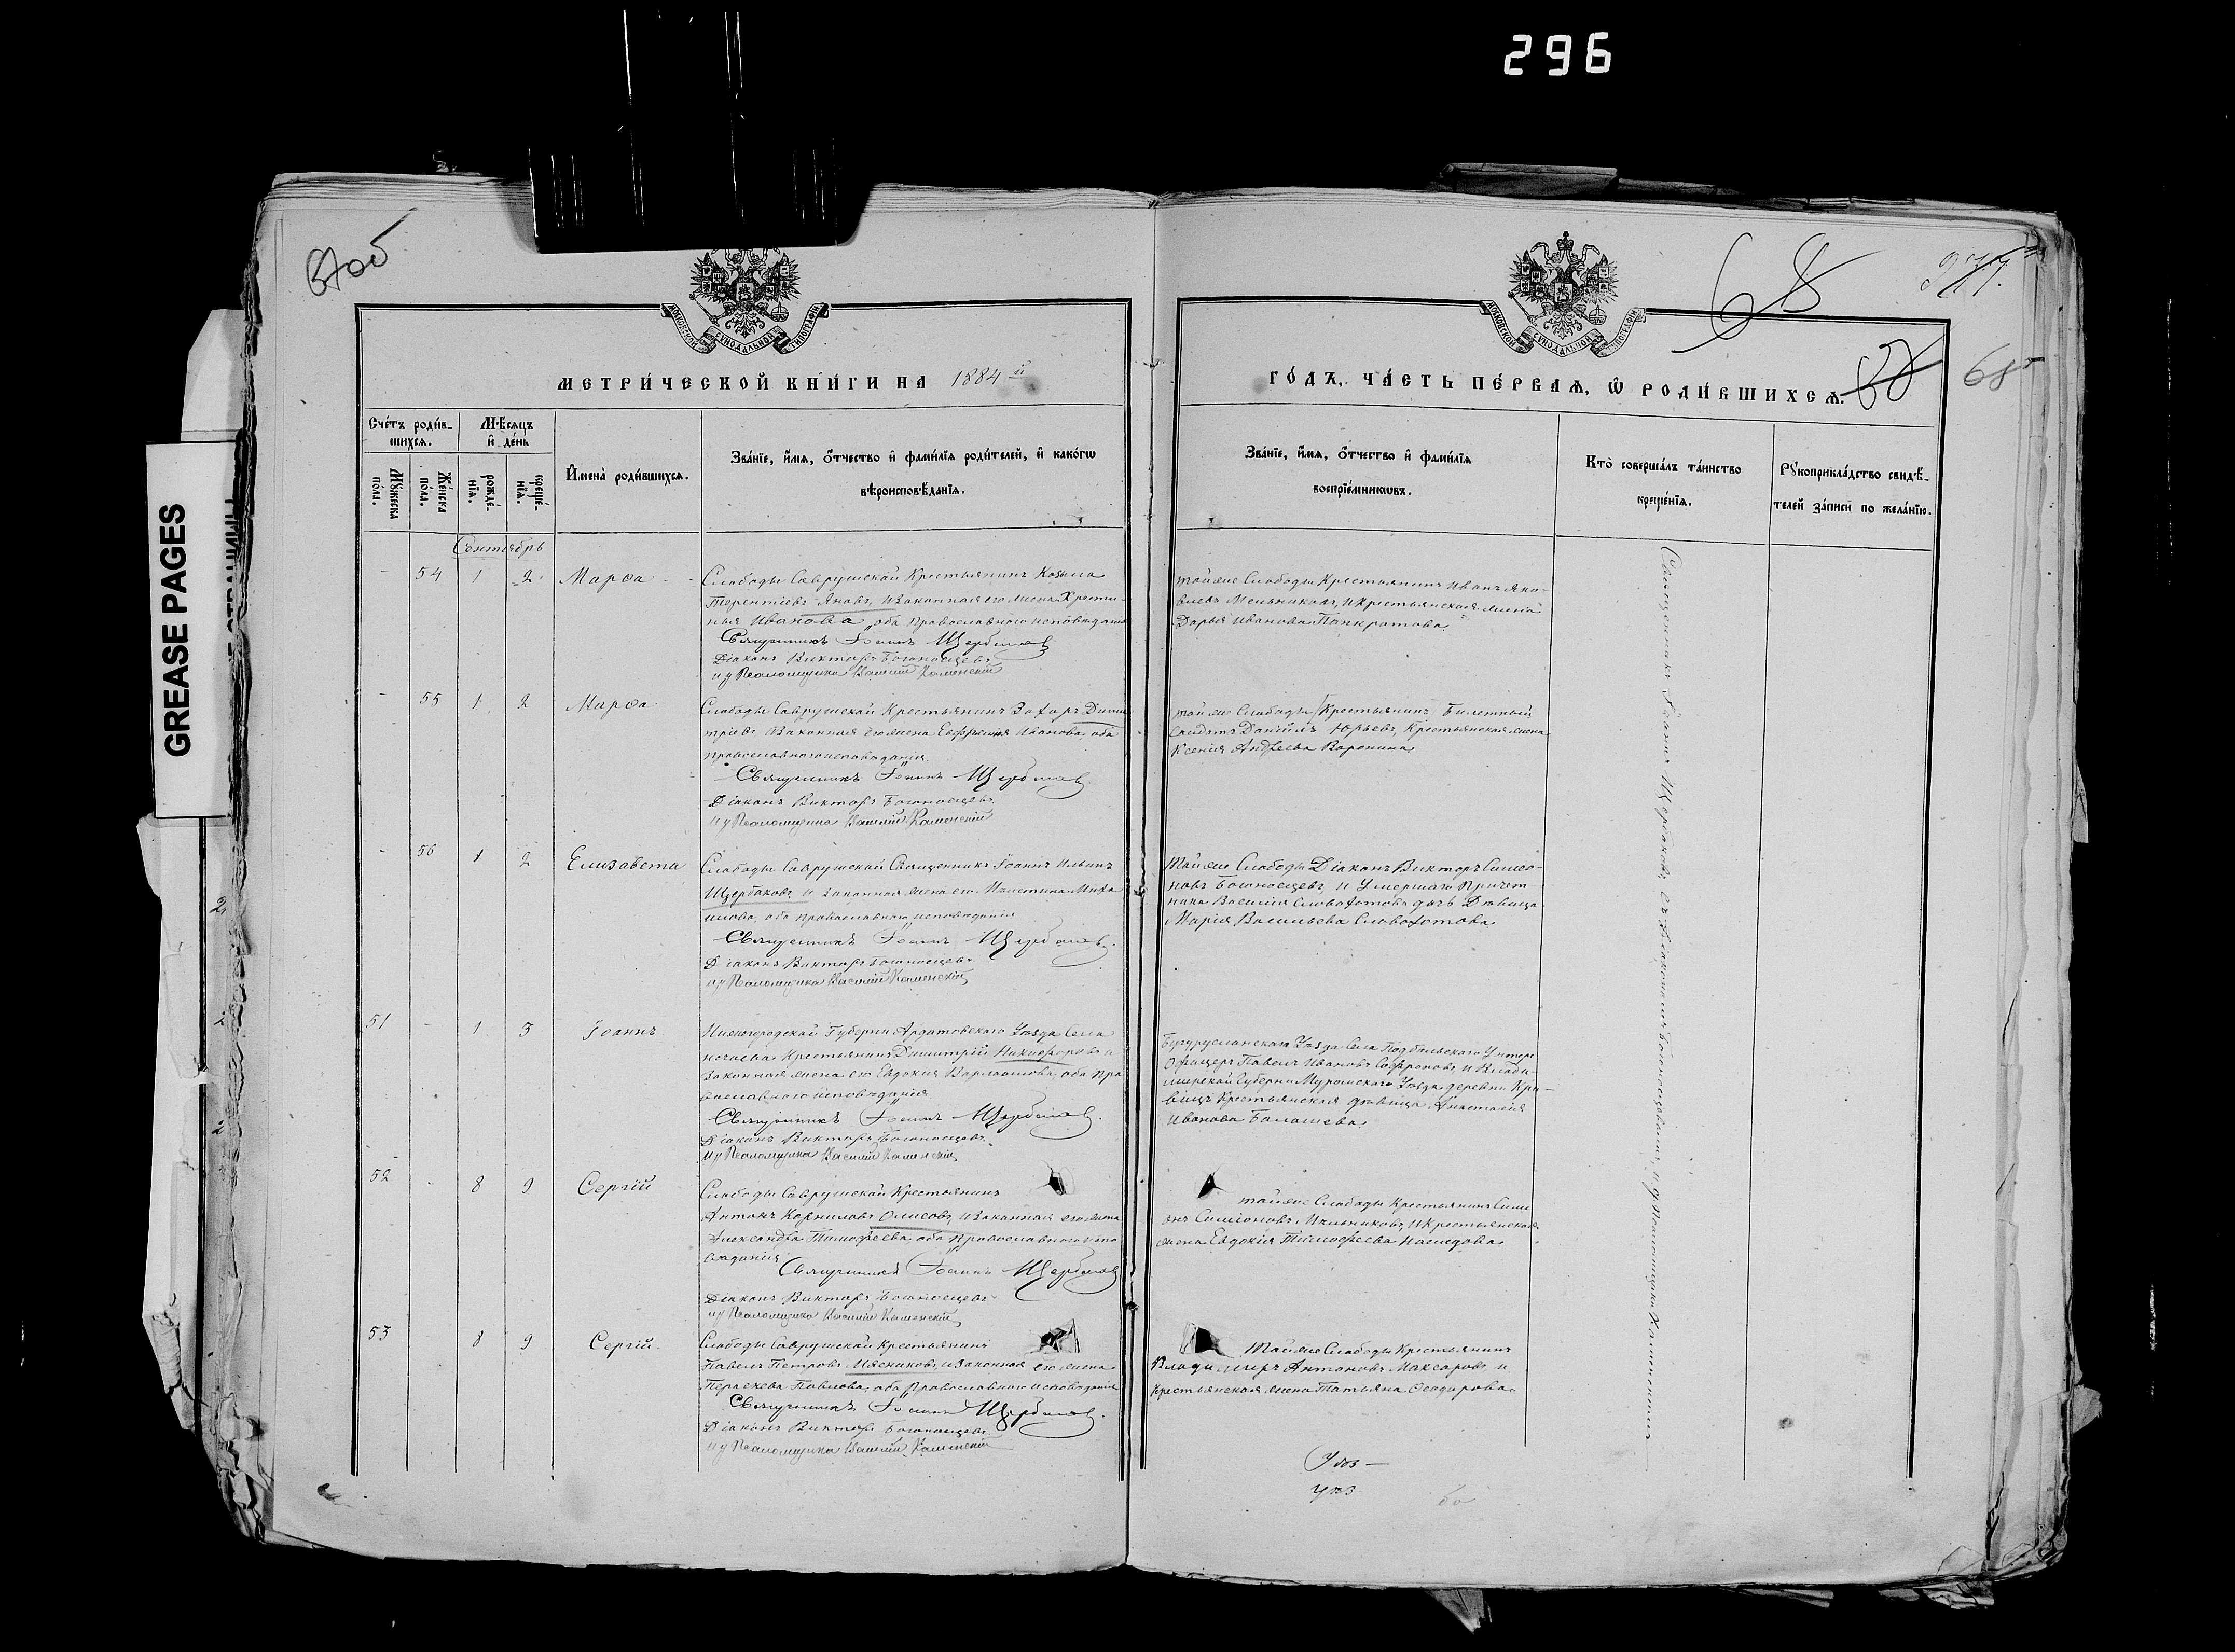 296
GREASE PAGES
67об
68
68
МОСКОВСКОЙ СУНОДАЛЬНОЙ ТИПОГРАФІИ
МОСКОВСКОЙ СУНОДАЛЬНОЙ ТИПОГРАФІИ
МЕТРИ́ЧЕСКОЙ КНИ́ГИ НА 1884й
ГО́ДЪ, ЧА́СТЬ ПЕ́РВАѦ, Ѡ҆ РОДИ́ВШИХСѦ.
Сче́тъ роди́в-
шихсѧ.
Мѣ́сѧцъ
и҆ де́нь
Мꙋ́жеска
по́ла.
Же́нска
по́ла.
рожде́-
нїѧ.
креще́-
нїѧ.
И҆мена̀ роди́вшихсѧ.
Зва́нїе, и҆́мѧ, ѻ҆́тчество и҆ фами́лїѧ роди́телей, и҆ како́гѡ
вѣроисповѣ́данїѧ.
Зва́нїе, и҆́мѧ, ѻ҆́тчество и҆ фами́лїѧ
воспрїе́мникѡвъ.
Кто̀ соверша́лъ та́инство
креще́нїѧ.
Рꙋкоприкла́дство свидѣ́-
телей за́писи по жела́нїю.
Сентябрь
- 54 1 2 Марѳа
Слободы Саврушской Крестьянинъ Козьма
Терентіевъ Яновъ, и законная его жена Хрести-
нья Иванова, оба православнаго исповѣданія
Священникъ Іоаннъ Щербаковъ
Діаконъ Викторъ Богоносцевъ
и д Псаломщика Василій Каменскій
тойже Слободы Крестьянинъ Иванъ Яко-
влевъ Мельниковъ, и крестьянская жена
Дарья Иванова Панкратова.
- 55 1 2 Марѳа
Слободы Саврушской Крестьянинъ Захаръ Дими
тріевъ, и законная его жена Евфимія Иванова, оба
православнаго исповѣданія.
Священникъ Іоаннъ Щербаковъ
Діаконъ Викторъ Богоносцевъ
и д Псаломщика Василій Каменскій
тойже Слободы Крестьянинъ Билетный
Солдатъ Даніилъ Юрьевъ, Крестьянская жена
Ксенія Андреева Воронина.
- 56 1 2 Елизавета
Слободы Саврушской Священникъ Іоаннъ Ильинъ
Щербаковъ, и законная жена его Миха
илова, оба православнаго исповѣданія
Священникъ Іоаннъ Щербаковъ.
Діаконъ Викторъ Богоносцевъ
и д Псаломщика Василій Каменскій
Тойже Слободы Діаконъ Викторъ Симео-
новъ Богоносцевъ, и умершаго Причет
ника Василія Словохотова дочь Дѣвица
Марія Васильева Словохотова.
51 - 1 3 Іоаннъ
Нижегородской Губерніи Ардатовскаго Уѣзда Села
Крестьянинъ Димитрій Никифоровъ и
законная жена его Евдокія Варлаамова, оба пра
вославнаго исповѣданія
Священникъ Іоаннъ Щербаковъ.
Діаконъ Викторъ Богоносцевъ
и д Псаломщика Василій Каменскій
Бугурусланскаго Уѣзда Села Подбельскаго Унтеръ
Офицеръ Павелъ Ивановъ Софроновъ, и Влади-
мирской Губерніи Муромскаго Уѣзда деревни
Крестьянская дѣвица Анастасія
Иванова Балашева.
52 - 8 9 Сергій
Слободы Саврушской Крестьянинъ
Антонъ Корниловъ Олисовъ, и законная его жена
Александра Тимофеева оба Православнаго испо
вѣданія
Священникъ Іоаннъ Щербаковъ
Діаконъ Викторъ Богоносцевъ
и д Псаломщика Василій Каменскій
тойже Слободы Крестьянинъ Симе
онъ Симіоновъ Мельниковъ, и Крестьянская
жена Евдокія Тимофеева
53 8 9 Сергій
Слободы Саврушской Крестьянинъ
Павелъ Петровъ Мясниковъ, и законная его жена
Параскева Павлова, оба Православнаго исповѣданія
Священникъ Іоаннъ Щербаковъ.
Діаконъ Викторъ Богоносцевъ
и д Псаломщика Василій Каменскій
Тойже Слободы Крестьянинъ
Владимиръ Антоновъ Макаровъ и
Крестьянская жена Татьяна
Священникъ Іоаннъ Щербаковъ, съ Діакономъ Богоносцевымъ, и д. Псаломщика Каменскимъ